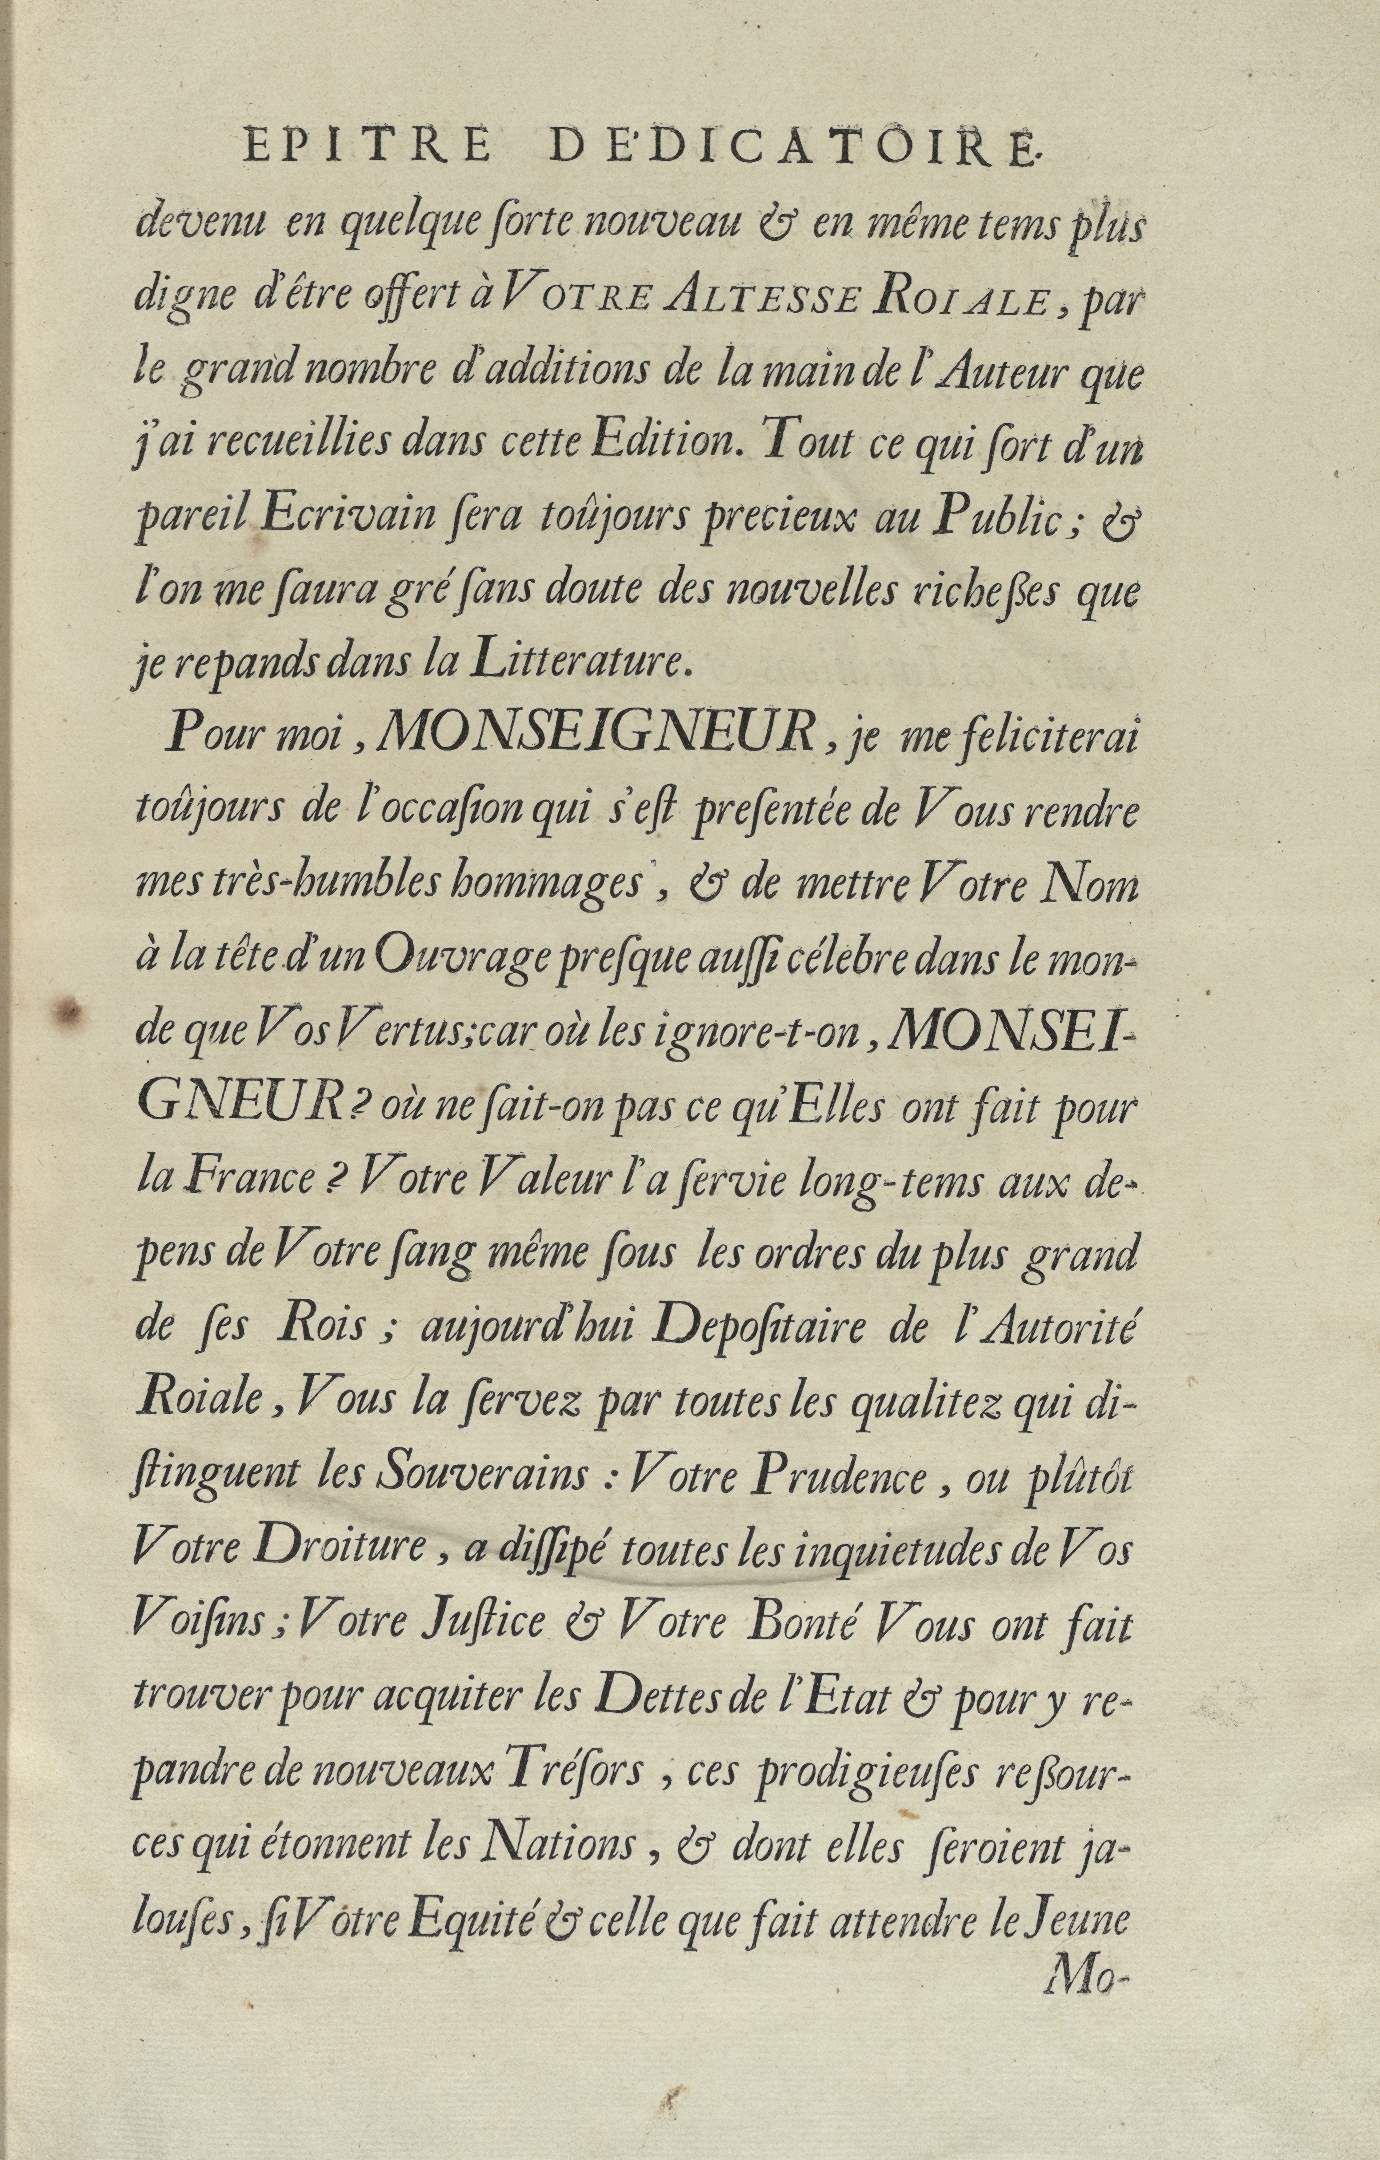 EPITRE DE'DICATOIRE.
devenu en quelque ſorte nouveau & en même tems plus
digne d'être offert à VOTRE ALTESSE ROIALE, par
le grand nombre d'additions de la main de l'Auteur que
j'ai recueillies dans cette Edition. Tout ce qui ſort d'un
pareil Ecrivain ſera toûjours precieux au Public; &
l'on me ſaura gré ſans doute des nouvelles richeßes que
je repands dans la Litterature.
Pour moi, MONSEIGNEUR, je me feliciterai
toûjours de l'occaſion qui s'eſt preſentée de Vous rendre
mes très-humbles hommages, & de mettre Votre Nom
à la tête d'un Ouvrage preſque auſſi célebre dans le mon-
de que Vos Vertus; car où les ignore-t-on, MONSEI-
GNEUR? où ne ſait-on pas ce qu'Elles ont fait pour
la France? Votre Valeur l'a ſervie long-tems aux de-
pens de Votre ſang même ſous les ordres du plus grand
de ſes Rois; aujourd'hui Depoſitaire de l'Autorité
Roiale, Vous la ſervez par toutes les qualitez qui di-
ſtinguent les Souverains: Votre Prudence, ou plûtôt
Votre Droiture, a diſſipé toutes les inquietudes de Vos
Voiſins; Votre Juſtice & Votre Bonté Vous ont fait
trouver pour acquiter les Dettes de l'Etat & pour y re-
pandre de nouveaux Tréſors, ces prodigieuſes reßour-
ces qui étonnent les Nations, & dont elles ſeroient ja-
louſes, ſi Votre Equité & celle que fait attendre le Jeune
Mo-